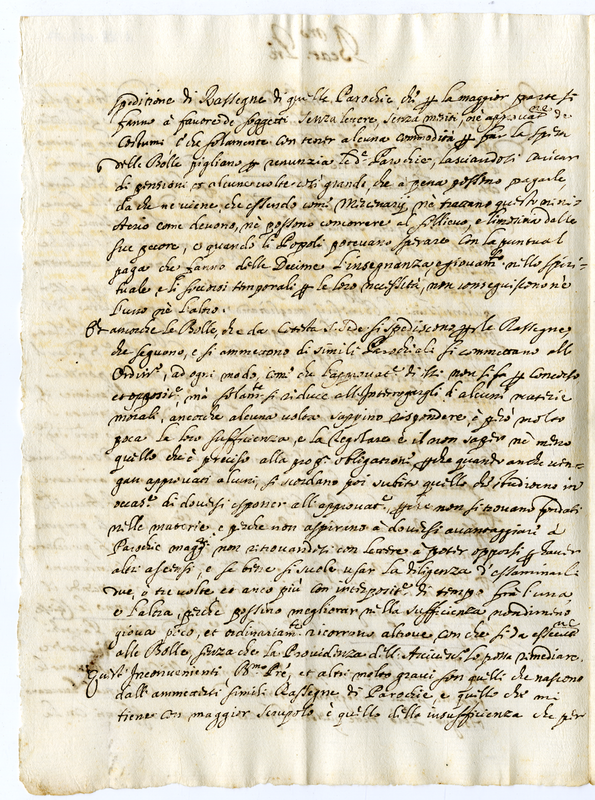 speditione di Rassegne di quelle Parochie che per la maggior parte si
fanno à favore de soggetti senza lettere, senza meriti, nè approvat.ne de
costumi e che solamente con tenere alcuna commodità per far la spesa
delle Bolle pigliano per renunzia le d.e Parochie, lasciandosi caricar
di pensioni et alcune volte così grande, che à pena possono pagarle,
da che ne viene, che essendo come Mercenarij, nè trattano questo minis
terio come devono, nè possono concorrere al sollievo, e limosina delle
sue pecore, e quando li Popoli potevano sperare con la puntual
paga che fanno delle Decime l'insegnanza, e giovam.to nello spiri=
tuale, e li sussidi temporali per le loro necessità, non conseguiscono nè
l'uno nè l'altro.
Et ancorche le Bolle, che da cotesta S. Sede si spediscono per le Rassegne
che seguono, e si ammettono di simili Parochiali si commettano all
Ordin.o, ad ogni modo, come che l'approvat.e di essi non si fa per concorso
et opposit.e, mà solam.te si riduce all'Interrogargli d'alcune materie
morali, ancorche alcuna volta sappino rispondere, è però molto
poca la loro sufficienza, e la regolare è il non saper nè meno
quello che è preciso alla prop.a obligatione, perche quando anche ven
gano approvati alcuni, si scordano poi subito quello che studiorno in
occas.e di doversi esponer all'approvat.e, perche non si trovano fondati
nelle materie, e perche non aspirino à doversi avantaggiare à
Parochie magg.ri non ritrovandosi con lettere à poter opporsi per haver
altri ascensi, e se bene si suole usar la diligenza d'essaminarli
due, ò tre volte et anco più con interposit.e di tempo frà l'una
e l'altra perche possino megliorar nella sufficienza nondimeno
giova poco, et ordinariam.te ricorrono altrove con che si dà essecut.ne
alle Bolle, senza che la Providenza dell'Arcivesc.o lo possa remediare.
Quest'Inconvenienti B.mo Pre, et altri molto gravi son quelli che nascono
dall'ammettersi simili Rassegne di Parochie, e quello che mi
tiene con maggior scrupolo è quello della insufficienza che per